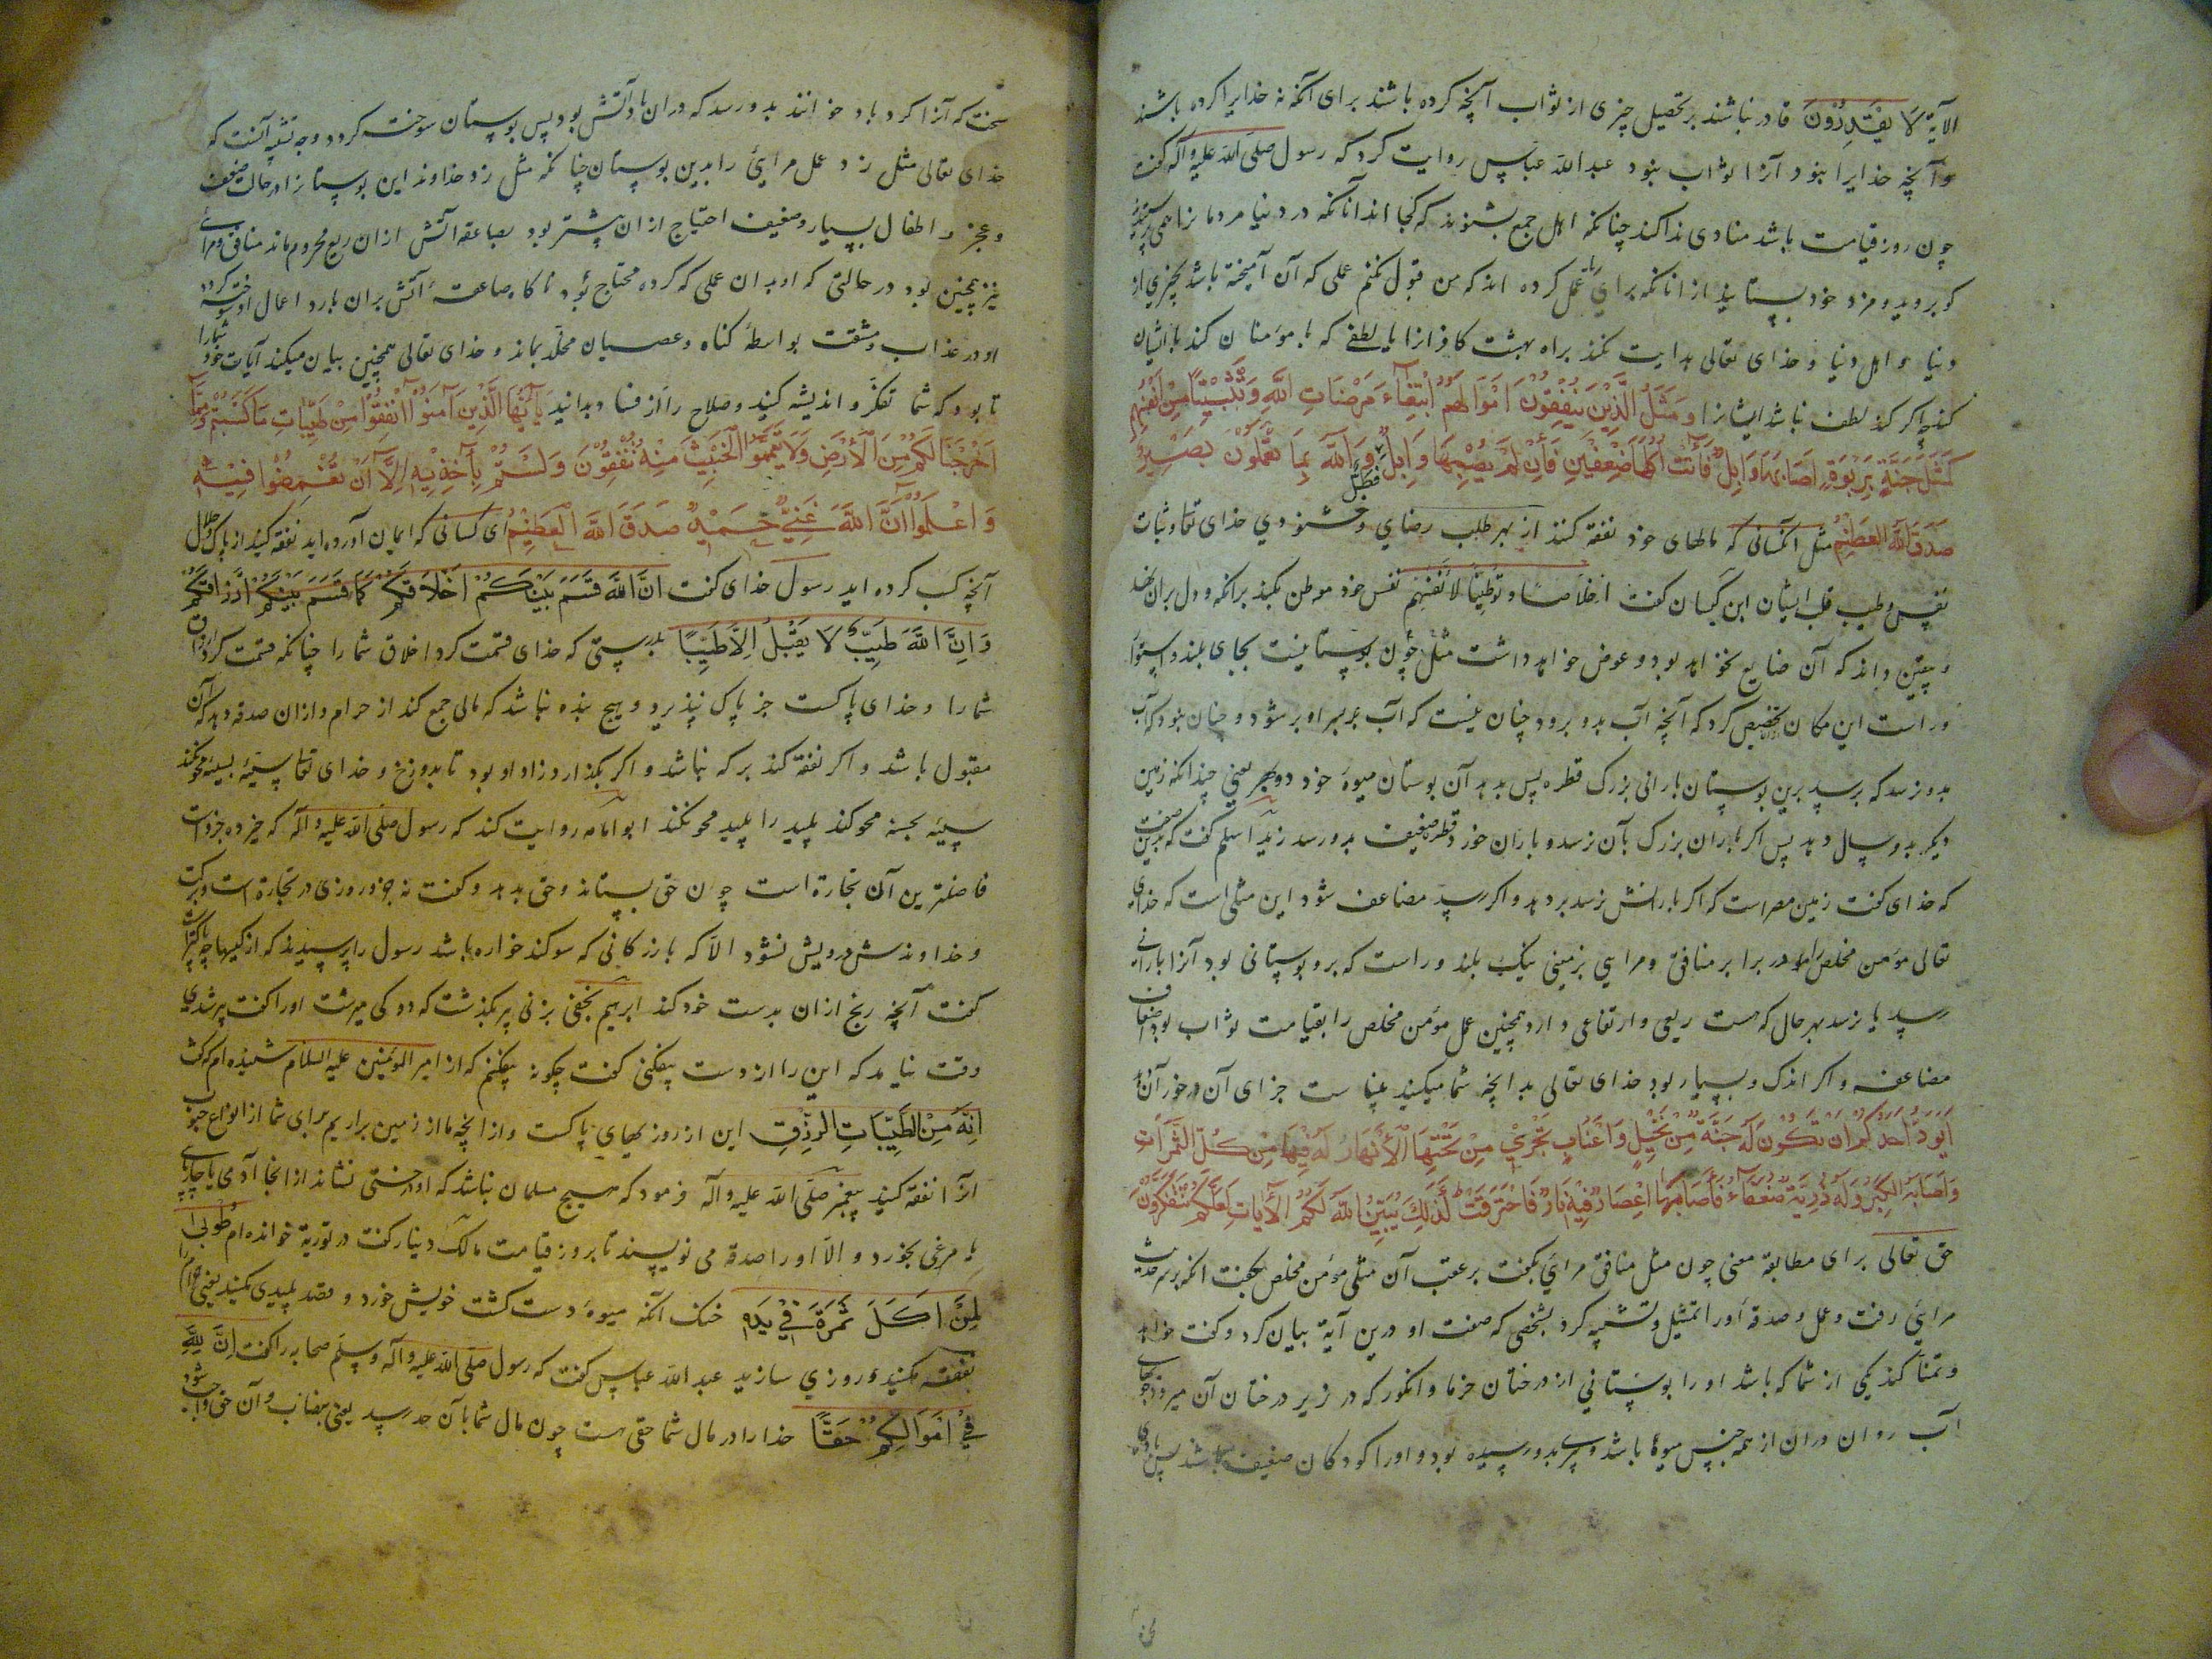 الآیة لَا یَقْدِرُوْنَ قادر نباشند بر تحصیل چیزی از ثواب آنچه کرده باشند برای آنکه نه خدایرا کرده باشند
و آنچه خدایرا نبود آنرا ثواب نبود عبد الله عباس روایت کرد که رسول صلی الله علیه و آله گفت
چون روز قیامت باشد منادی ندا کند چنانکه اهل جمع بشنوند که کجا اند آنانکه در دنیا مردمانرا می
کو بروید و مزد خود بستانید از آنانکه برای عمل کرده اند که من قبول نکنم عملی که آن آمیخته باشد بچیزی از
دنیا و اهل دنیا و خدای تعالی هدایت نکند براه بهشت کافرانرا یا لطفی که با مؤمنان کند با ایشان
کند اکر کند لطف نباشد ایشانرا وَمَثَلُ الَّذِیْنَ یُنْفِقُوْنَ اَمْوَالَهُمُ ابْتِغَآءَ مَرْضَاتِ اللهِ وَتَثْبِیْتًا مِنْ اَنْفُسِهِمْ
کَمَثَلِ جَنَّةٍ بِرَبْوَةٍ اَصَابَهَا وَابِلٌ فَاٰتَتْ اُکُلَهَا ضِعْفَیْنِ فَاِنْ لَمْ یُصِبْهَا وَابِلٌ فَطَلٌّ وَاللهُ بِمَا تَعْمَلُوْنَ بَصِیْرٌ
صَدَقَ اللهُ الْعَظِیْمُ مثل آنکسانی که مالهای خود نفقه کنند از بهر طلب رضای و خشنودی خدای تعا و ثبات
نفس و طیب قلب ایشان ابن کیسان گفت اخلاصا و توطینا لانفسهم نفس خود موطن بکند برانکه و دل بران نهد
و یقین داند که آن ضایع نخواهد بود و عوض خواهد داشت مثل چون بوستانیست بجای بلند و استوا
و راست این مکان تخصیص کرد که آنچه آب بدو برود چنان نیست که آب بر سر او بر شود و چنان نبود که آب
بدو نرسد که برسد برین بوستان بارانی بزرک قطره پس بدهد آن بوستان میوهٔ خود دو بهر یعنی چندانکه زمین
دیکر بدو سال دهد پس اکر باران بزرک بآن نرسد و باران خورد قطره ضعیف بدو رسد زید اسلم گفت که بدین صفت
که خدای گفت زمین مصر است که اکر بارانش نرسد بر دهد و اکر رسد مضاعف شود این مثلی است که خدای
تعالی مؤمن مخلص را در برابر منافق و مرایی بزمینی نیک بلند و راست که برو بوستانی بود آنرا بارانی
رسد یا نرسد بهر حال که هست ریعی و ارتفاعی دارد همچنین عمل مؤمن مخلص را بقیامت ثواب بود اضعاف
مضاعف و اکر اندک و بسیار بود خدای تعالی بدانچه شما میکنید بیناست جزای آن در خور آن
اَیَوَدُّ اَحَدُکُمْ اَنْ تَکُوْنَ لَهُ جَنَّةٌ مِنْ نَخِیْلٍ وَاَعْنَابٍ تَجْرِیْ مِنْ تَحْتِهَا الْاَنْهَارُ لَهُ فِیْهَا مِنْ کُلِّ الثَّمَرَاتِ
وَاَصَابَهُ الْکِبَرُ وَلَهُ ذُرِّیَّةٌ ضُعَفَآءُ فَاَصَابَهَا اِعْصَارٌ فِیْهِ نَارٌ فَاحْتَرَقَتْ کَذٰلِکَ یُبَیِّنُ اللهُ لَکُمُ الْاٰیَاتِ لَعَلَّکُمْ تَتَفَکَّرُوْنَ
حق تعالی برای مطابقهٔ معنی چون مثل منافق مرایی بگفت بر عقب آن مثلی مؤمن مخلص بگفت آنکه بر سر حدیث
مرایی رفت و عمل و صدقهٔ اورا تمثیل و تشبیه کرد بشخصی که صفت او درین آیة بیان کرد و گفت خواهد
و تمنا کند یکی از شما که باشد اورا بوستانی از درختان خرما و انکور که در زیر درختان آن میرود جوی
آب روان دران از همه جنس میوها باشد و پیری بدو رسیده بود و اورا کودکان ضعیف باشند پس بادی
سخت که آنرا کردباد خوانند بدو رسد که دران باد آتش بود پس بوستان سوخته کردد وجه تشبیه آنست که
خدای تعالی مثل زد عمل مرایی را بدین بوستان چنانکه مثل زد خداوند این بوستانرا در حالت ضعف
و عجز و اطفال بسیار و ضعیف احتیاج ازان بیشتر بود بصاعقه آتش ازان ریع محروم ماند منافق و مرایی
نیز همچنین بود در حالتی که او بدان عملی که کرده محتاج بود ناکاه صاعقهٔ آتش بران بارد اعمال او سوخته کردد
او در عذاب و مشقت بواسطهٔ کناه و عصیان مخلد بماند و خدای تعالی همچنین بیان میکند آیات خود شمارا
تا بود که شما تفکر و اندیشه کنید و صلاح را از فساد بدانید یَا اَیُّهَا الَّذِیْنَ اٰمَنُوْا اَنْفِقُوْا مِنْ طَیِّبَاتِ مَا کَسَبْتُمْ وَمِمَّا
اَخْرَجْنَا لَکُمْ مِنَ الْاَرْضِ وَلَا تَیَمَّمُوا الْخَبِیْثَ مِنْهُ تُنْفِقُوْنَ وَلَسْتُمْ بِاٰخِذِیْهِ اِلَّا اَنْ تُغْمِضُوْا فِیْهِ
وَاعْلَمُوْا اَنَّ اللهَ غَنِیٌّ حَمِیْدٌ صَدَقَ اللهُ الْعَظِیْمُ ای کسانی که ایمان آورده اید نفقه کنید از پاک و حلال
آنچه کسب کرده اید رسول خدای گفت اِنَّ اللهَ قَسَمَ بَیْنَکُمْ اَخْلَاقَکُمْ کَمَا قَسَمَ بَیْنَکُمْ اَرْزَاقَکُمْ
وَاِنَّ اللهَ طَیِّبٌ لَا یَقْبَلُ اِلَّا طَیِّبًا بدرستی که خدای قسمت کرد اخلاق شما را چنانکه قسمت کرد ارزاق
شما را و خدای پاکست جز پاک نپذیرد و هیچ بنده نباشد که مالی جمع کند از حرام و ازان صدقه دهد که آن
مقبول باشد و اکر نفقه کند برکه نباشد و اکر بکذارد زاد او بود تا بدوزخ و خدای تعا سیئه بسیئه محو نکند
سیئه بحسنه محو کند پلید را پلید محو نکند ابو امامه روایت کند که رسول صلی الله علیه و آله که خیر ده جزو است
فاضلترین آن تجارة است چون حق بستاند و حق بدهد و گفت نه جزو روزی در تجارة است و برکت
و خداوندش درویش نشود الا که بازرکانی که سوکند خواره باشد رسول را پرسیدند که از کسبها چه پاکتر است
گفت آنچه رنج ازان بدست خود کند ابرهیم نخعی بزنی پیر بکذشت که دوکی میرشت اورا گفت پیر شدی
وقت نیامد که این را از دست بیفکنی گفت چکونه بیفکنم که از امیر المؤمنین علیه السلام شنیده ام که گفت
اِنَّهُ مِنَ الطَّیِّبَاتِ الرِّزْقِ این از روزیهای پاکست و از آنچه ما از زمین براریم برای شما از انواع حبوب
آنرا نفقه کنید پیغمبر صلی الله علیه و آله فرمود که هیچ مسلمان نباشد که او درختی نشاند از آنجا آدمی یا چارپای
یا مرغی بخورد و الا اورا صدقه می نویسند تا بروز قیامت مالک دینار گفت در توریة خوانده ام طُوْبٰی
لِمَنْ اَکَلَ ثَمَرَةً فِیْ یَدِهِ خنک آنکه میوهٔ دست کشت خویش خورد و قصد پلیدی مکنید یعنی حرام را
نفقه مکنید و روزی سازید عبد الله عباس گفت که رسول صلی الله علیه و آله وسلم صحابه را گفت اِنَّ لِلهِ
فِیْ اَمْوَالِکُمْ حَقًّا خدا را در مال شما حقی هست چون مال شما بآن حد رسد یعنی بنصاب و آن حق واجب شود